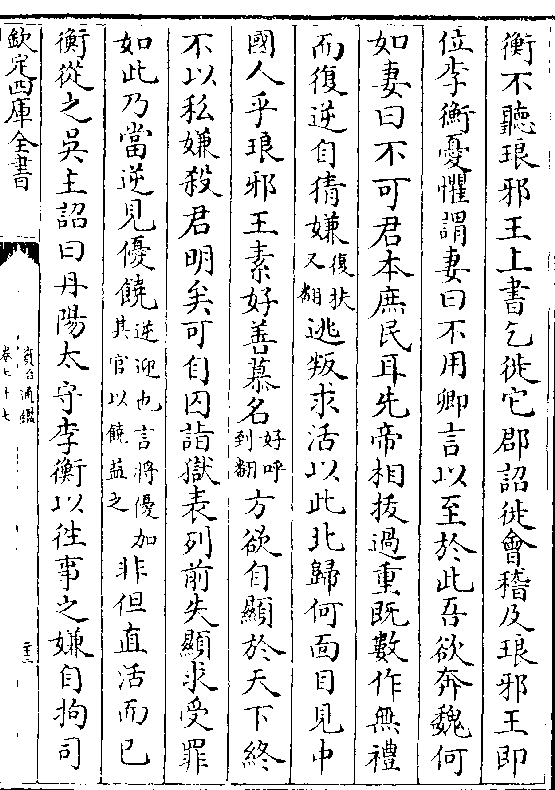 衡不聽琅邪王上書乞徙它郡詔徙會稽及琅邪王即
位李衡憂懼謂妻曰不用卿言以至於此吾欲奔魏何
如妻曰不可君本庶民耳先帝相拔過重既數作無禮
而復逆自猜嫌復扶又翻逃叛求活以此北歸何面目見中
國人乎琅邪王素好善慕名好呼到翻方欲自顯於天下終
不以私嫌殺君明矣可自囚詣獄表列前失顯求受罪
如此乃當逆見優饒逆迎也言將優加其官以饒益之非但直活而已
衡從之吳主詔曰丹陽太守李衡以徃事之嫌自拘司
欽定四庫全書
資治通鑑
卷七十七
二十三